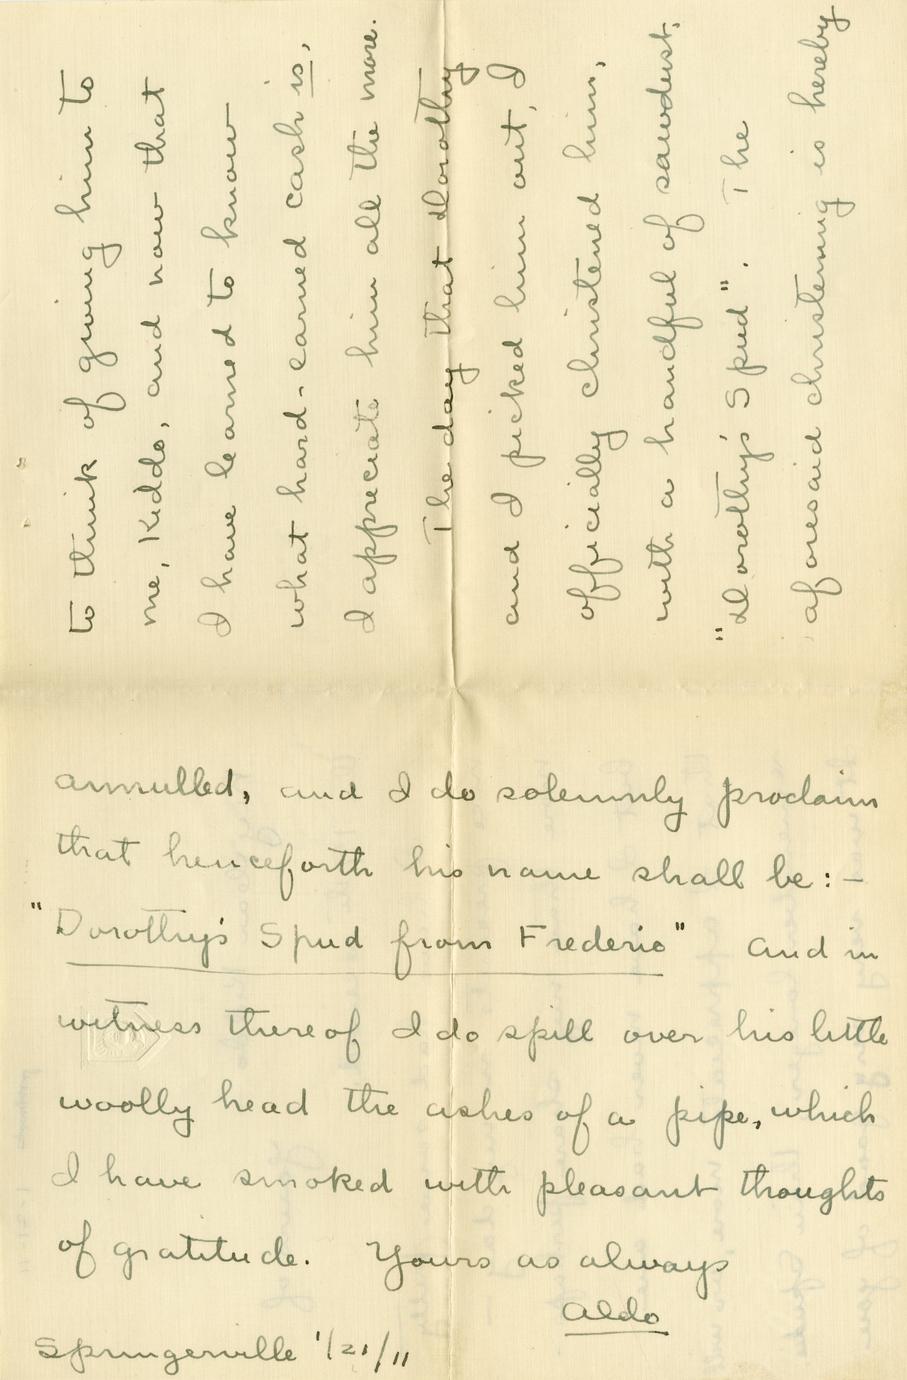 to think of giving him to
me, Kiddo, and now that
I have learned to know
what hard-earned cash is,
I appreciate him all the more.
The day that Dorothy
and I picked him out, I
officially christened him,
with a handful of sawdust,
"Dorothy's Spud". The
aforesaid christening is hereby
annulled, and I do solemnly proclaim
that henceforth his name shall be:—
"Dorothy's Spud from Frederic" And in
witness thereof I do spill over his little
woolly head the ashes of a pipe, which
I have smoked with pleasant thoughts
of gratitude. Yours as always
Aldo
Springerville 1/21/11